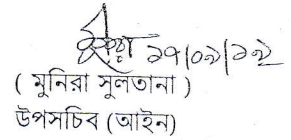 ১৭/০৯/১২
( মুনিরা সুলতানা )
উপসচিব (আইন)